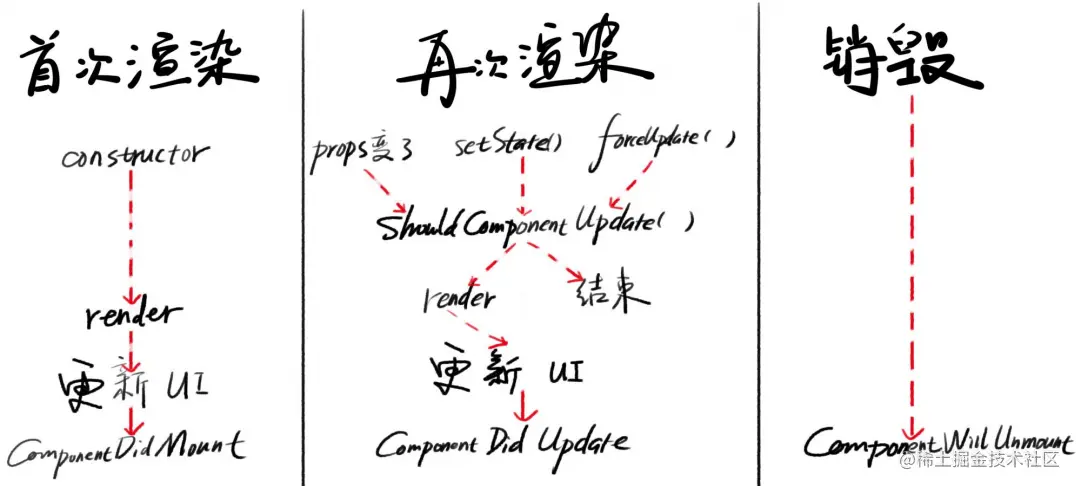 首次渲染
constructor
render
更新 UI
ComponentDidMount
再次渲染
props变了 setState() forceUpdate( )
ShouldComponentUpdate( )
render 结束
更新 UI
Component Did Update
销毁
ComponentWillUnmount
@稀土掘金技术社区